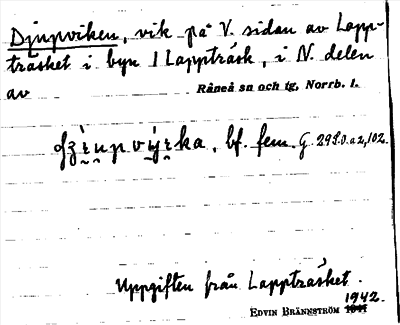 Djupviken, vik på V. sidan av Lapp-
träsket i byn 1 Lappträsk, i N. delen
av Råneå sn och tg, Norrb. l.
bf. fem. G. 29
Uppgiften från Lappträsket.
1942.
EDVIN BRÄNNSTRÖM 1941